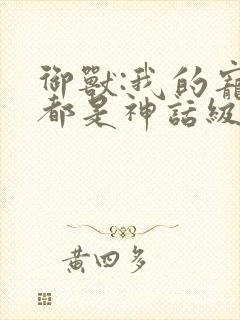 御獸:我的寵
都是神話級
黃四多